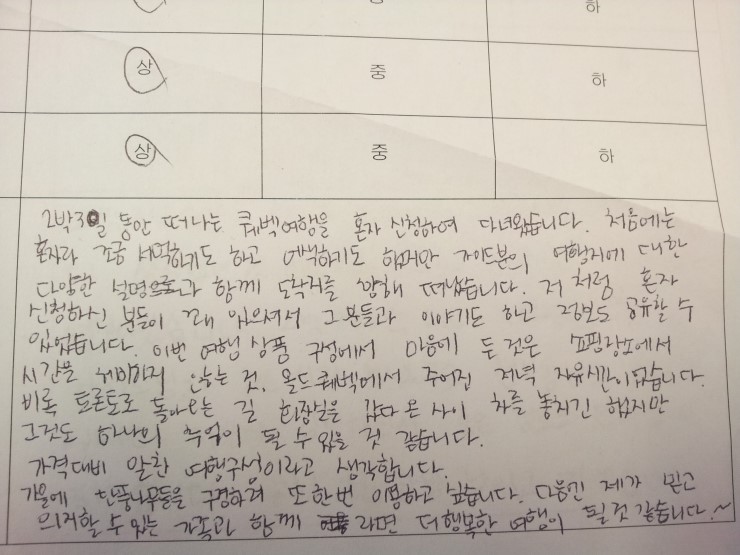 하
상 중 하
상 중 하
2박3일 동안 떠나는 퀘벡여행을 혼자 신청하여 다녀왔습니다. 처음에는
혼자라 조금 서먹하기도 하고 어색하기도 했지만 가이드분의 여행지에 대한
다양한 설명으로과 함께 도착지를 향해 떠났습니다. 저 처럼 혼자
신청하신 분들이 꽤 있으셔서 그분들과 이야기도 하고 정보도 공유할 수
있었습니다. 이번 여행 상품 구성에서 마음에 든 것은 쇼핑장소에서
시간을 헤매이지 않는 것, 올드퀘벡에서 주어진 저녁 자유시간이었습니다.
비록 토론토로 돌아오는 길 화장실을 갔다 온 사이 차를 놓치긴 했지만
그것도 하나의 추억이 될 수 있을 것 같습니다.
가격대비 알찬 여행구성이라고 생각합니다.
가을에 단풍나무들을 구경하러 또한번 이용하고 싶습니다. 다음엔 제가 믿고
의지할 수 있는 가족과 함께 라면 더 행복한 여행이 될것 같습니다.~